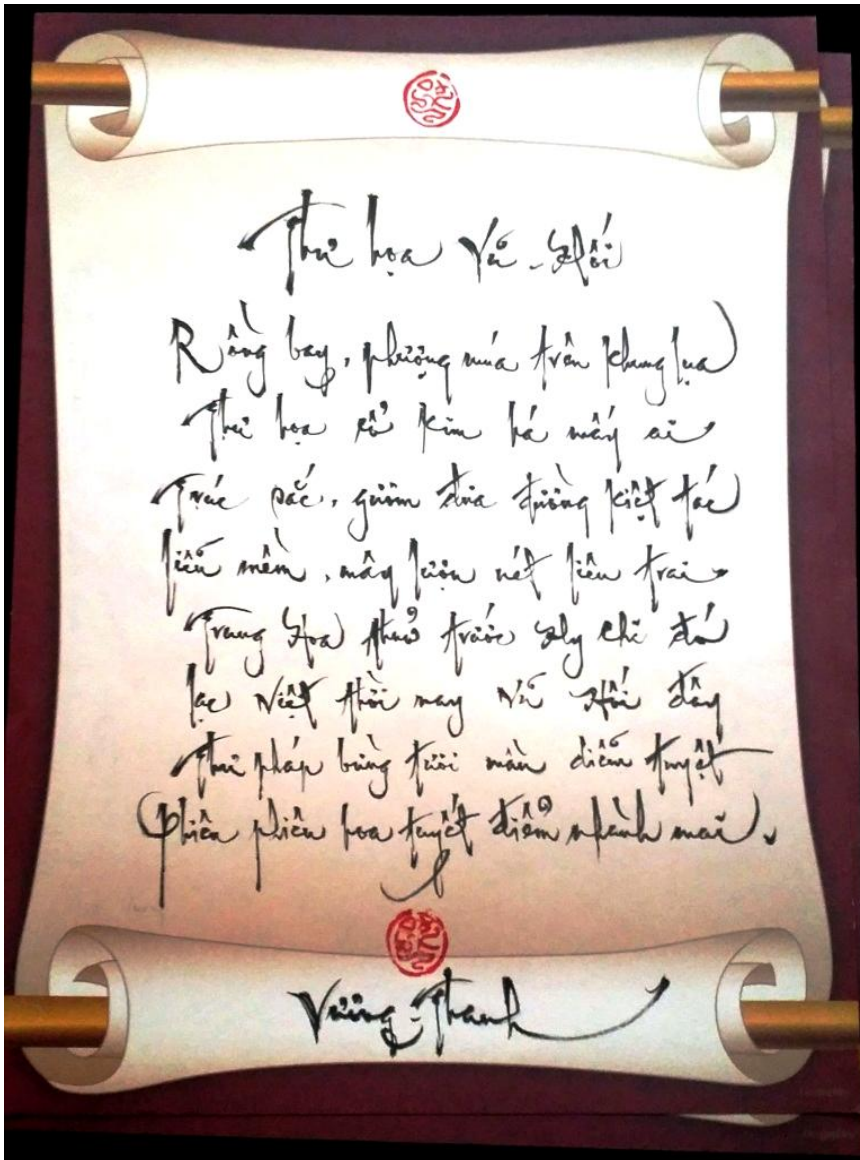 Thư họa Vũ - Hối
Rồng bay, phượng múa trên khung lụa
Thư họa cổ kim há mấy ai
Trúc sắc, gươm đưa đường kiệt tác
Liễu mềm, mây lượn nét liêu trai
Trung Hoa thuở trước Hy Chi đó
Lạc Việt thời nay Vũ Hối đây
Thư pháp bừng tươi màn diễm tuyệt
Phiên phiên hoa tuyết điểm nhành mai.
Vương-Thanh